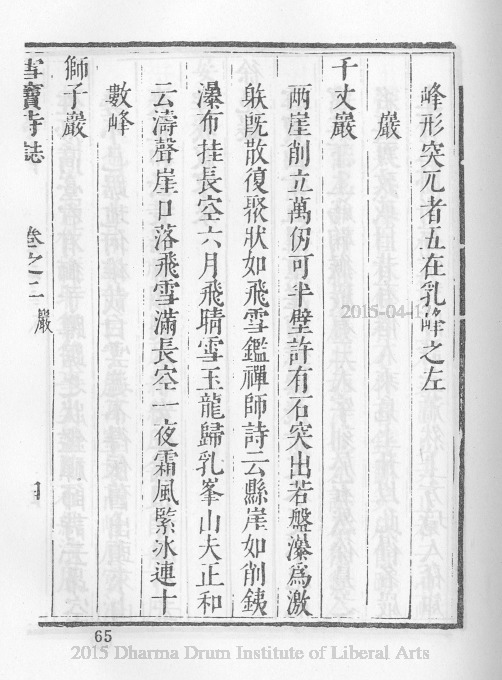 峰形突兀者五在乳峰之左
巖
千丈巖
兩崖削立萬仞可半壁許有石突出若盤瀑爲激
躱既散復聚狀如飛雪鑑禪師詩云縣崖如削鉄
瀑布挂長空六月飛晴雪玉龍歸乳峯山夫正和
云濤聲崖口落飛雪滿長空一夜霜風緊冰連十
數峰
獅子巖
雪竇寺誌 卷之二 巖 四
65
2015-04-17
2015 Dharma Drum Institute of Liberal Arts